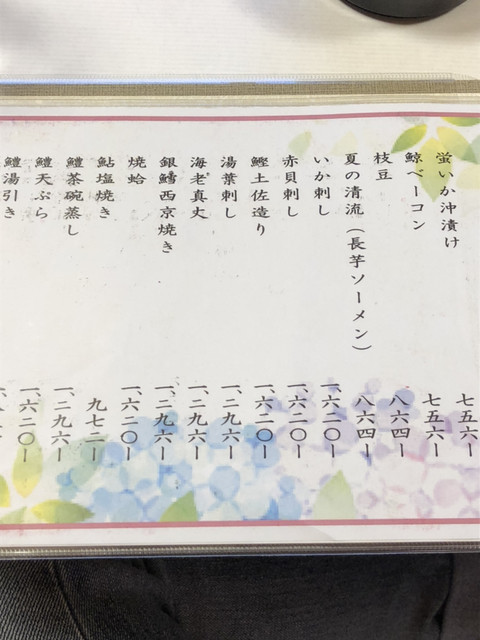 蛍いか沖漬け 七五六ー
鯨ベーコン 七五六ー
枝豆 八六四ー
夏の清流（長芋ソーメン） 八六四ー
いか刺し 一、六二〇ー
赤貝刺し 一、六二〇ー
鰹土佐造り 一、六二〇ー
湯葉刺し 一、二九六ー
海老真丈 一、二九六ー
銀鱈西京焼き 一、二九六ー
焼蛤 一、六二〇ー
鮎塩焼き 九七二ー
鱧茶碗蒸し 一、二九六ー
鱧天ぷら 一、六二〇ー
鱧湯引き